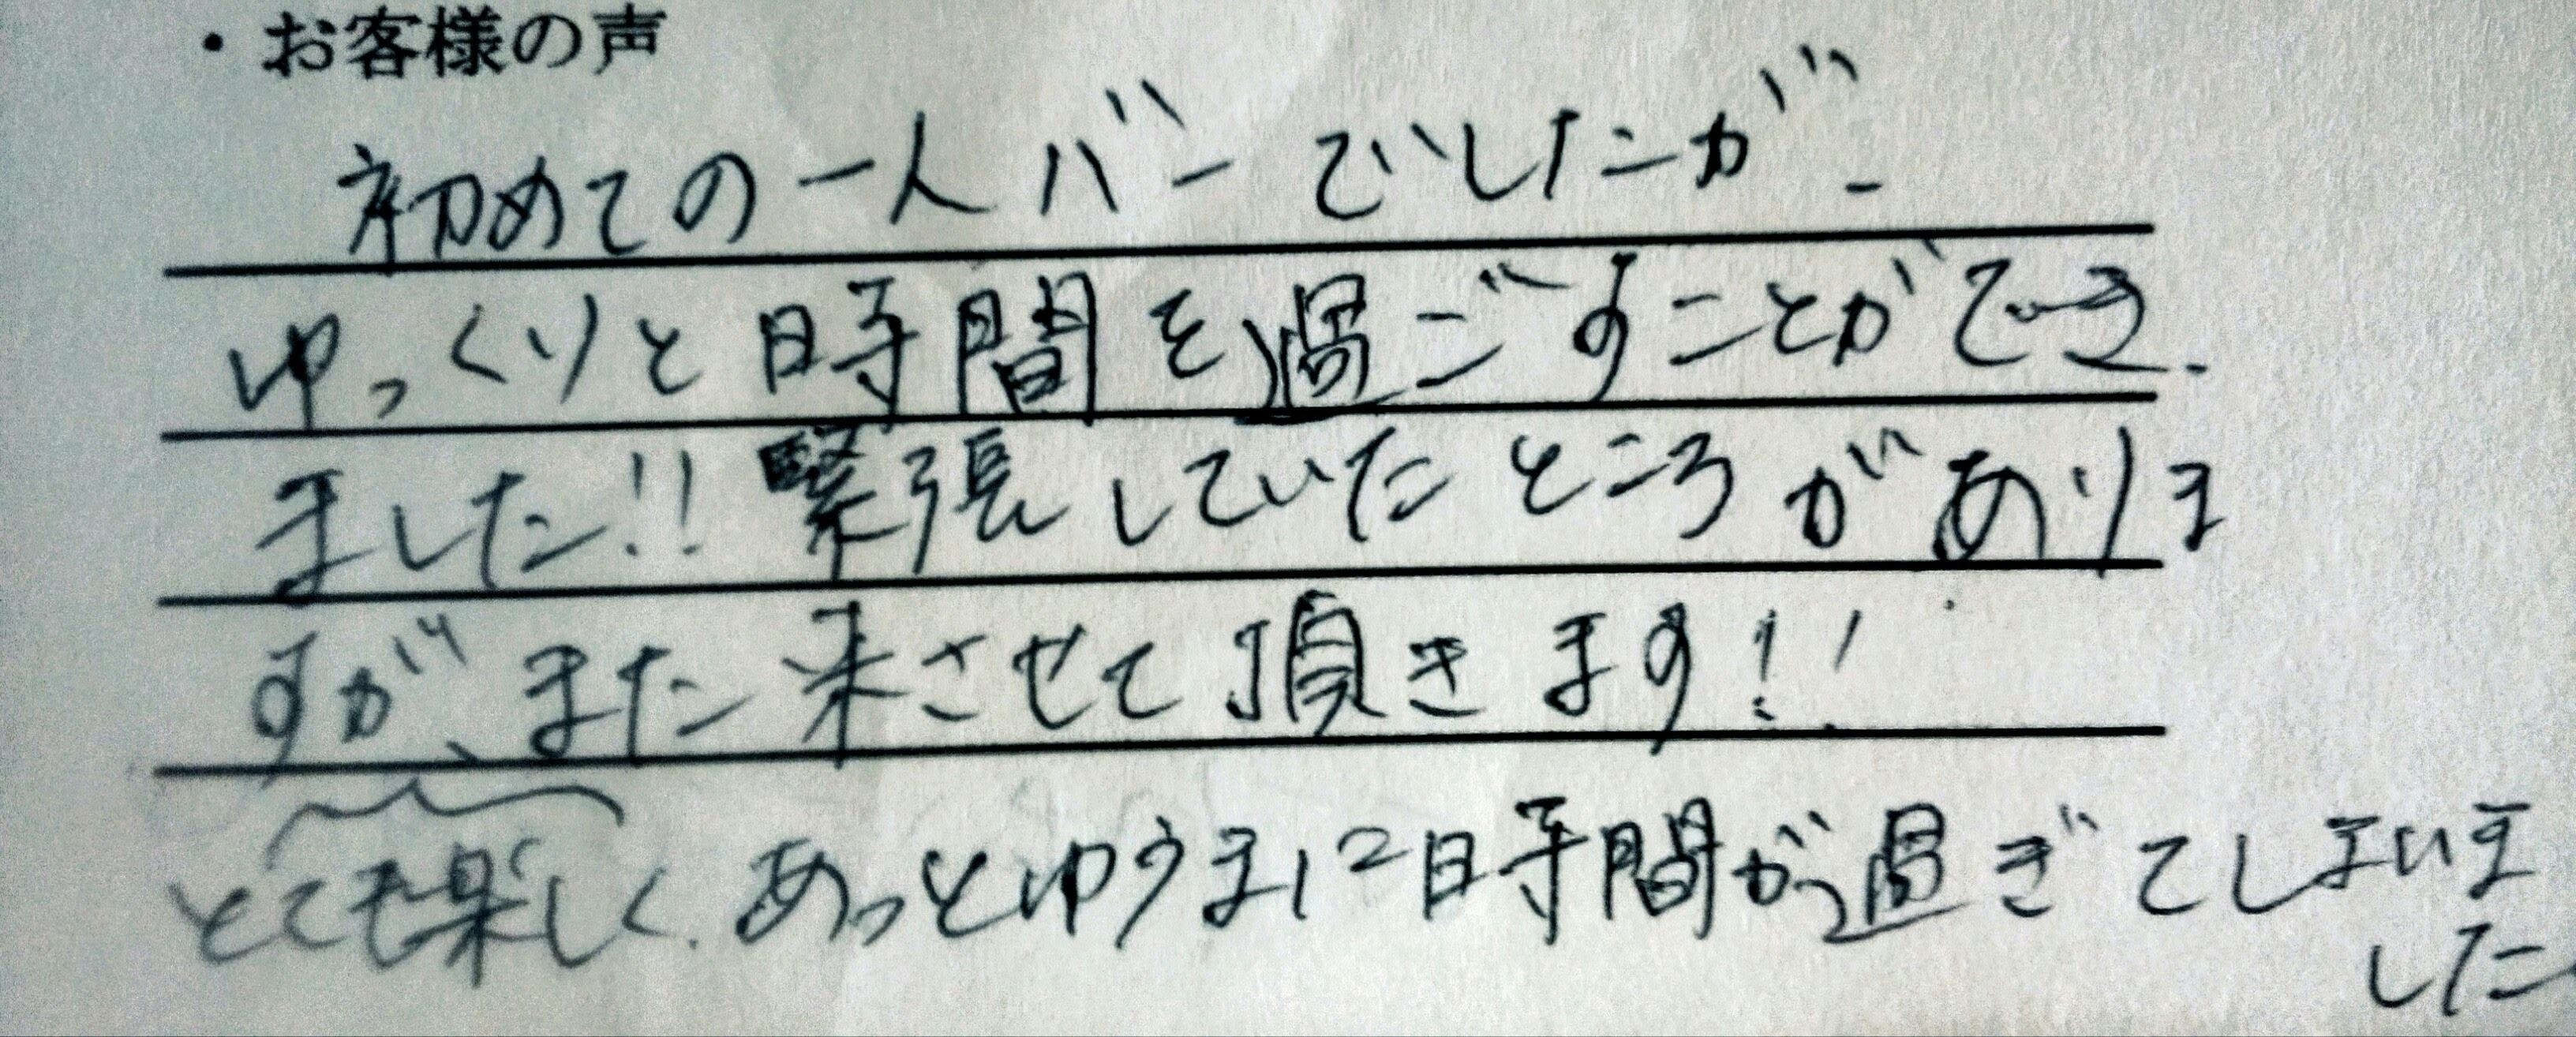 ・お客様の声
初めての一人バーでしたが、
ゆっくりと時間を過ごすことができ
ました!! 緊張していたところがありま
すが、また来させて頂きます!!
とても楽しく、あっとゆうまに時間が過ぎてしまいま
した